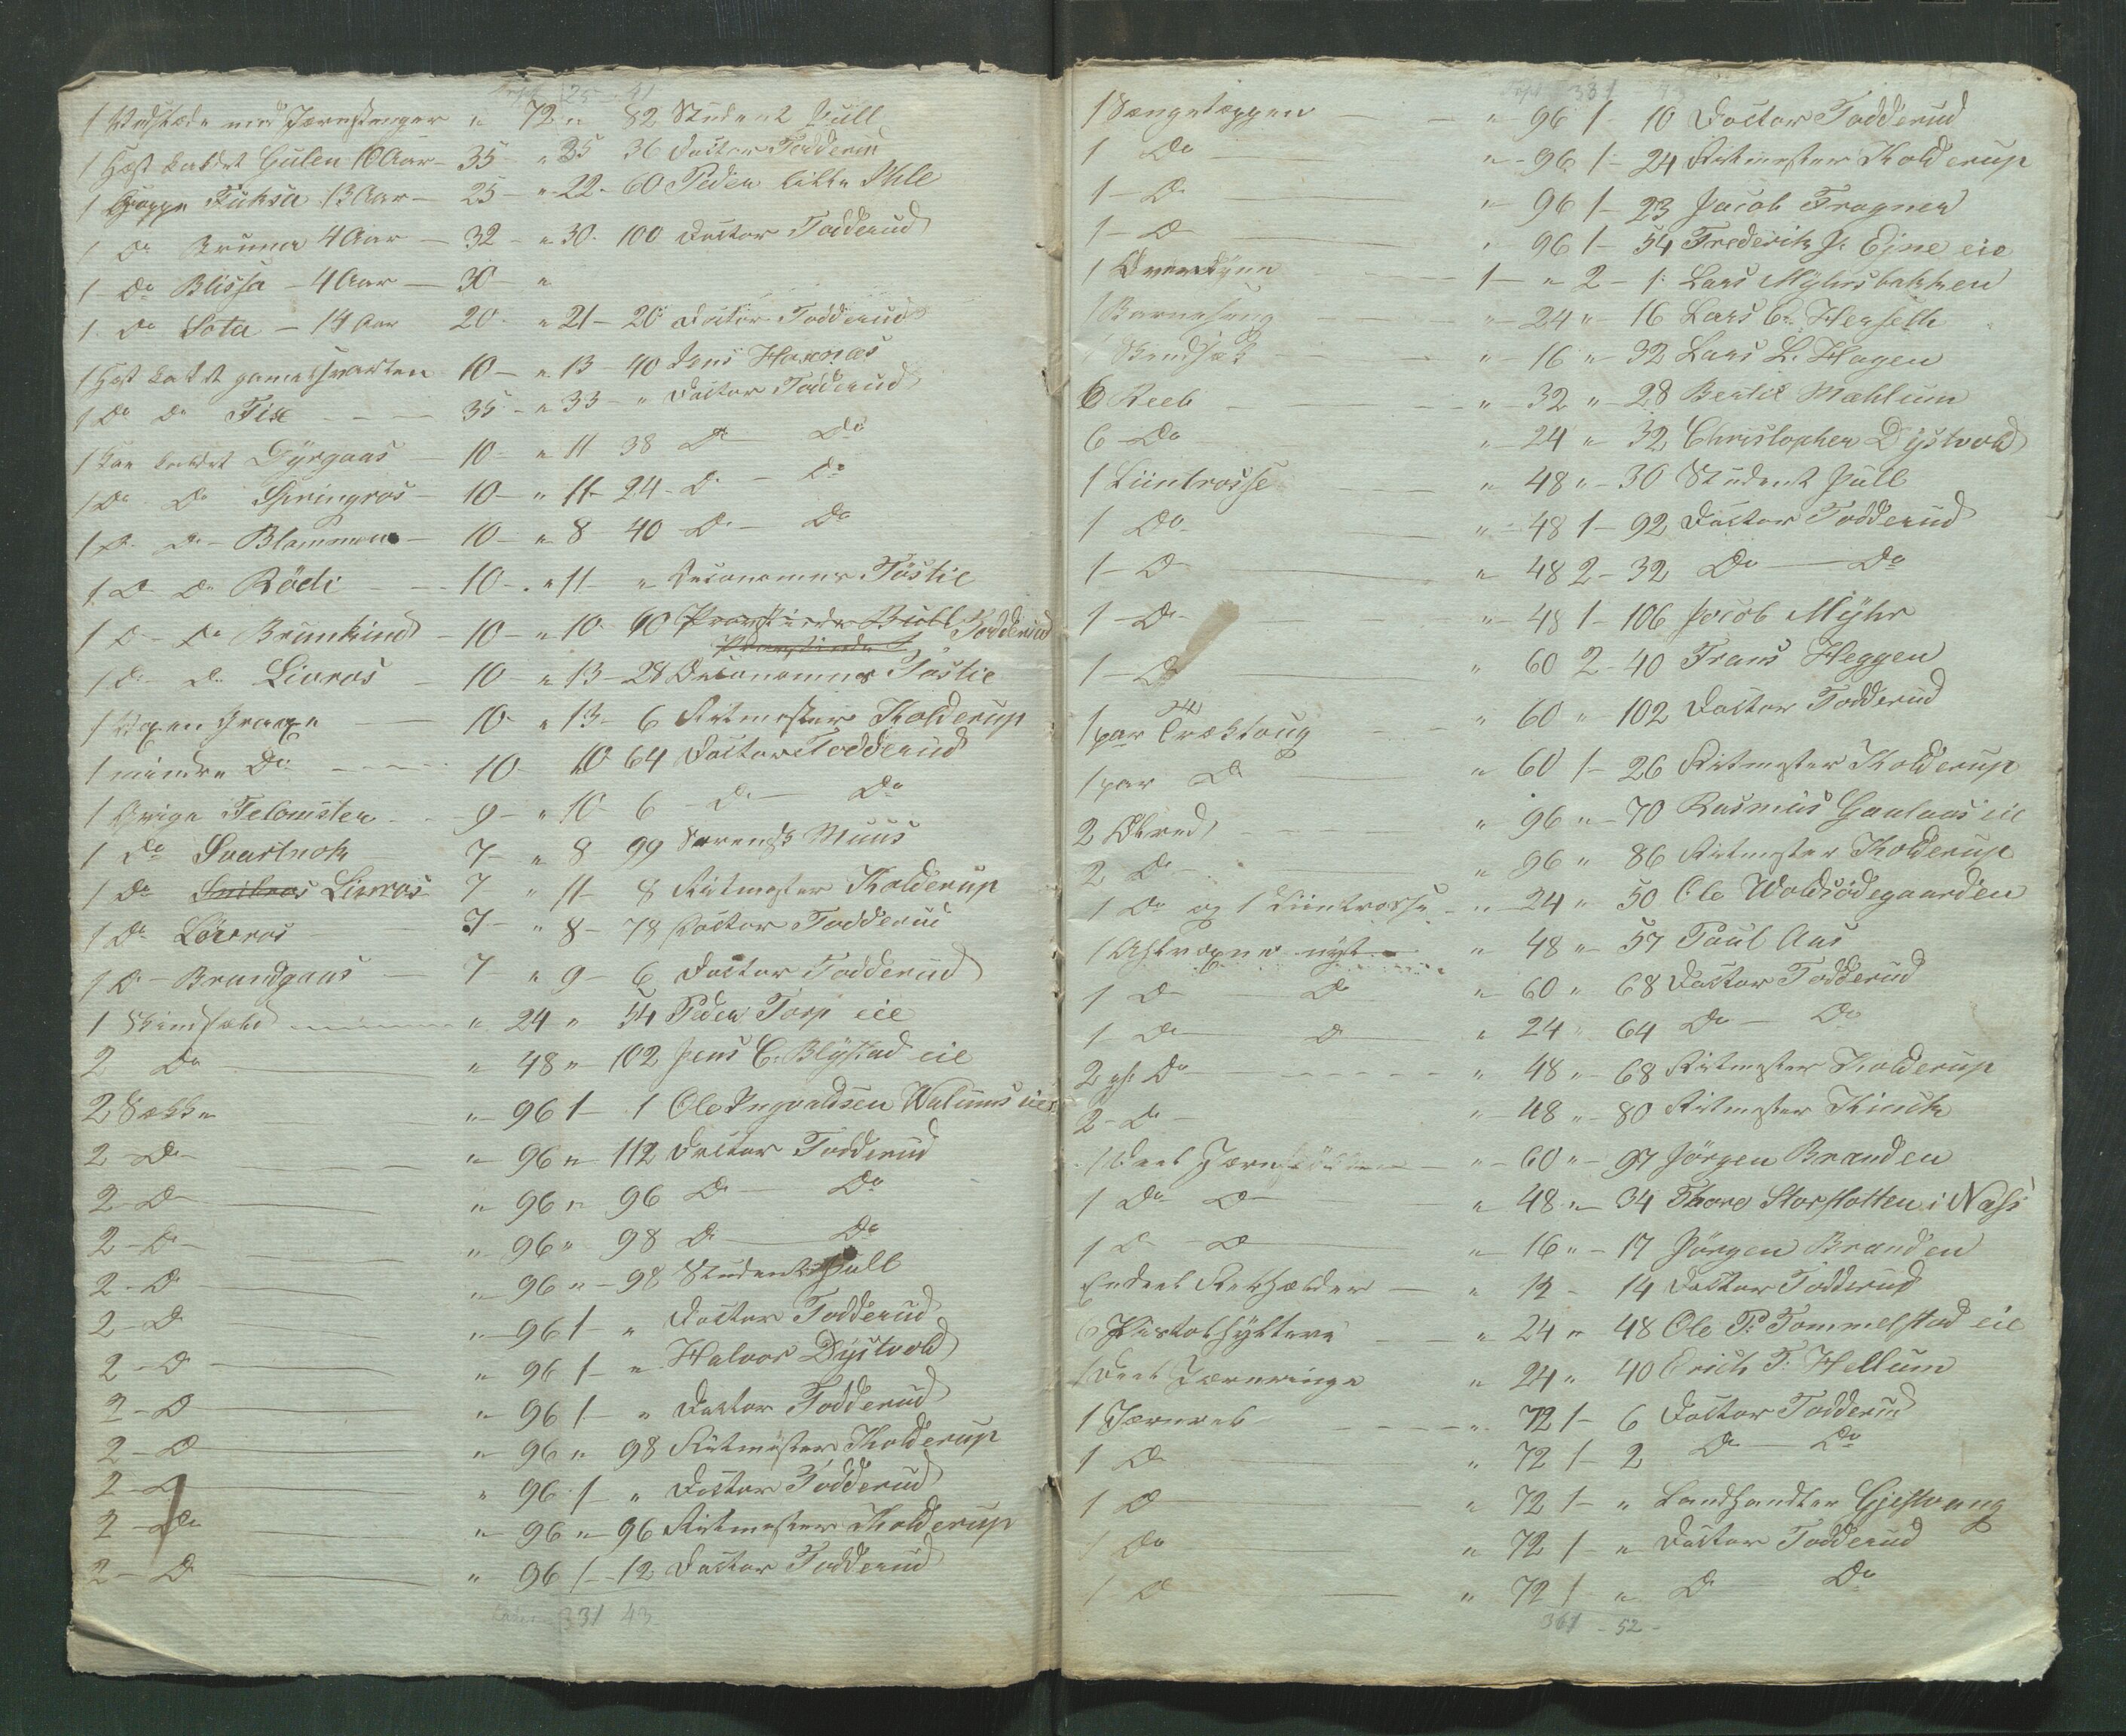 Transp 125 - 41
1 med Jærnstenger " 72 " 82 Student Juell
1 Hest kaldet Gulen 10 Aar - 35 - " 35 36 Doctor Todderud
1 Hoppe Fuksa 13 Aar - 25 - " 22 - 60 Peder lille Ihle
1 Do Bruna 4 Aar - 32 - " 30 - 100 Doctor Todderud
1 Do Blissa - 4 Aar - 30 - "
1 Do Sota - 14 Aar 20 - " 21 - 20 Doctor Todderud
1 Hest kaldet gamelsvarten 10 - " 13 - 40 Jens Hoxnæs
1 Do Do Fix - - 35 - " 33 - " Doctor Todderud
1 Koe kaldet Dyrgaas - 10 - " 11 38 Do Do
1 Do Do Springros - 10 - " 11 - 24 - Do - Do
1 Do Do - Blommen - 10 - " 8 - 40 Do - Do
1 Do Do Rödli - - 10 - " 11 - " Oeconomus Töstie
1 Do - Do Brunkind - 10 - " 10 - 40 Todderud
1 Do Do Livros - 10 - " 13 - 28 Oeconomus Töstie
1 10 - " 13 - 6 Ritmester Kolderup
1 mindre Do - - - 10 - 10 64 Doctor Todderud
1 Qvige Telomsten - - 9 - " 10 - 6 - Do - Do
1 Do Svartnok 7 - " 8 99 Sorensk: Muus
1 Do Livros 7 " 11 - 8 Ritmester Kolderup
1 Do Löveros 7 - " 8 - 78 Doctor Todderud
1 Do - Brandgaas - 7 " 9 - 6 Doctor Todderud
1 Skindfeld " 24 " 54 Peder Torp eie
2 Do " 48 " 102 Jens C: Blystad eie
2 Sække " 96 1 - 1 Ole Ingvaldsen Waluns eie
2 Do " 96 " 112 Doctor Todderud
2 - Do " 96 " 96 Do - Do
2 - Do " 96 " 98 Do - Do
2 - Do " 96 " - 98 Student Juell
2 - Do " 96 1 - " Doctor Todderud
2 - Do " 96 1 - " Halvor Dystvold
2 - Do " 96 1 - " Doctor Todderud
2 - Do " 96 " 98 Ritmester Kolderup
2 - Do " 96 1 - " Doctor Todderud
2 - Do " 96 " - 96 Ritmester Kolderup
2 - Do " 96 1 - 12 Doctor Todderud
331 43
Transp 331 43
1 Sengetæppen - - " 96 1 - 10 Doctor Todderud
1 Do - " - 96 1 - 24 Ritmester Kolderup
1 - Do " - 96 1 - 23 Jacob Fragner
1 - Do " 96 1 - 54 Frederik J: Ejne eie
1 Overdyne - - - 1 - " 2 - 1: Lars Myhrsbakken
1 Barneseng - - - " - 24 " 16 Lars Cr. Herseth
1 Skindsæk - - - " 16 " - 32 Lars L. Hagen
6 Reeb - - " - 32 " - 28 Bertil Mæhlum
6 - Do " - 24 " 32 Christopher Dystvold
1 Liintrosse - - " 48 " - 30 Student Juell
1 Do - " - 48 1 - 92 Doctor Todderud
1 - Do " 48 2 - 32 Do - Do
1 - Do " - 48 1 - 106 Jacob Myhr
1 - Do " 60 2 - 40 Frans Heggen
1 par Træktoug - - " 60 " - 102 Doctor Todderud
1 par Do " 60 1 - 26 Ritmester Kolderup
2 - - - " 96 " - 70 Rasmus Gaalaas eie
2 Do " 96 " 86 Ritmester Kolderup
1 Do og 1 Liintrosse - " - 24 " 50 Ole Woldsödegaarden
1 " - 48 " - 57 Poul Aas
1 Do Do " 60 " 68 Doctor Todderud
1 Do Do " 24 " 64 Do - Do
2 Do - - - - " 48 " - 68 Ritmester Kolderup
2 - Do " - 48 " - 80 Ritmester Kinck
1 Deel " - 60 " - 97 Jörgen Branden
1 Do Do " 48 " - 34 Thore Storslotten i Næss
1 Do - Do " - 16 " - 17 Jörgen Branden
" 12 - 14 Doctor Todderud
6 Pistolhyltere - " 24 " 48 Ole P: Tommelstad eie
1 Deel Jærnringe " 24 " 40 Erich T: Hellum
1 - - - " 72 1 - 6 Doctor Todderud
1 Do " 72 1 - 2 Do - Do
1 Do " 72 1 - " Landhandler Gjestvang
1 Do " 72 1 - " Doctor Todderud
1 Do " 72 1 - " Do Do
361 - 52 -